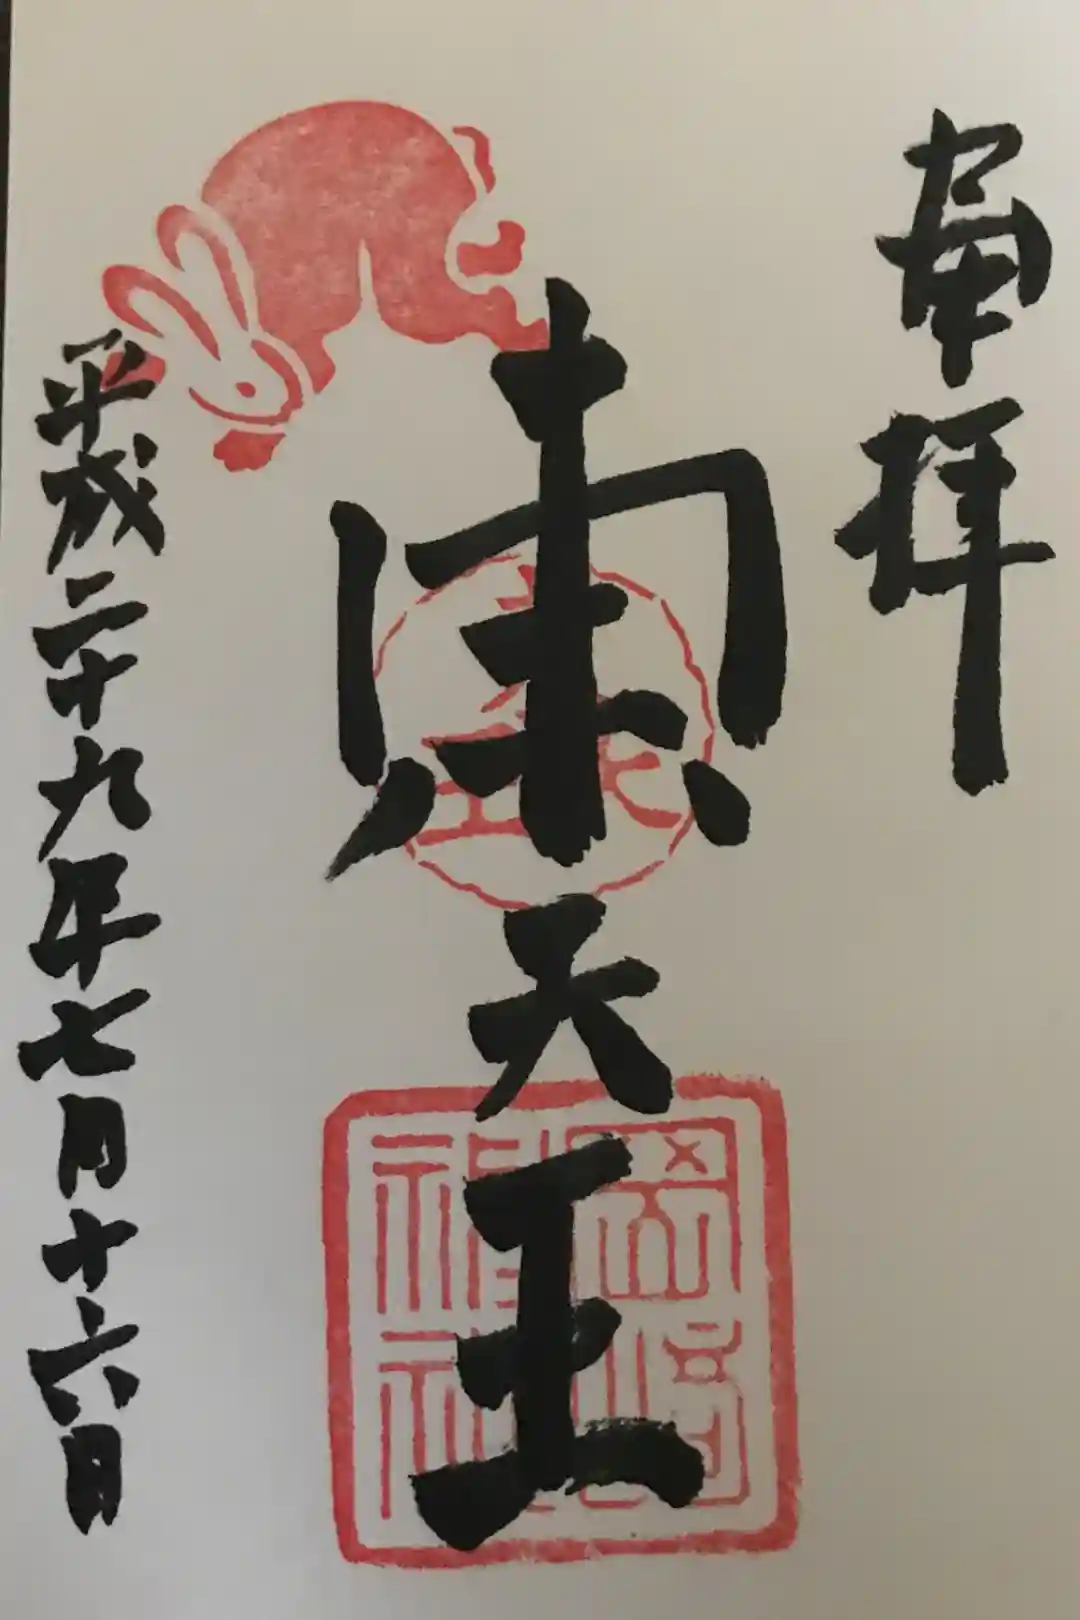 奉拝
東天王
岡崎神社
平成二十九年七月十六日